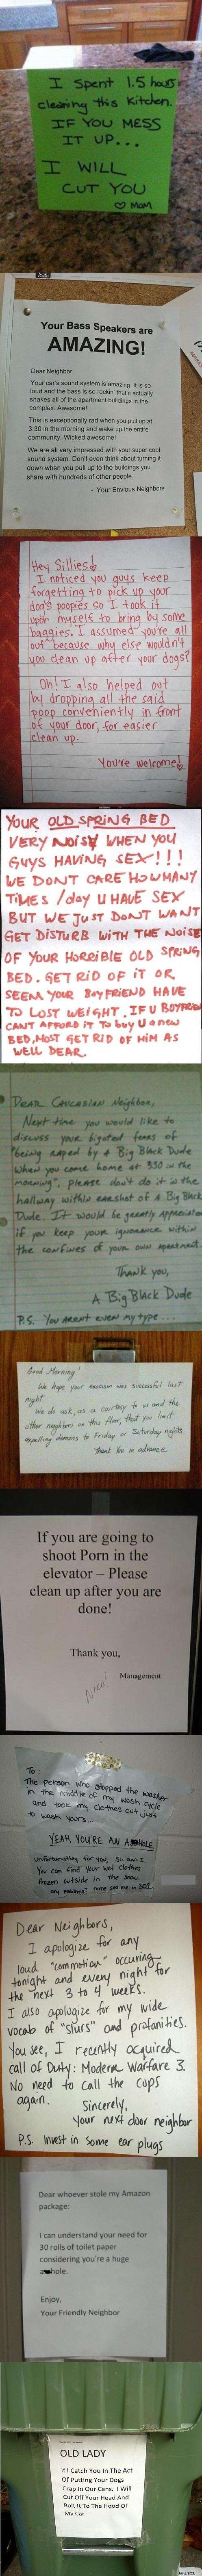 I spent 1.5 hours
cleaning this kitchen.
IF YOU MESS
IT UP...
I WILL
CUT YOU
♡ MOM
Your Bass Speakers are
AMAZING!
Dear Neighbor,
Your car's sound system is amazing. It is so
loud and the bass is so rockin' that it actually
shakes all of the apartment buildings in the
complex. Awesome!
This is exceptionally rad when you pull up at
3:30 in the morning and wake up the entire
community. Wicked awesome!
We are all very impressed with your super cool
sound system. Don't even think about turning it
down when you pull up to the buildings you
share with hundreds of other people.
- Your Envious Neighbors
Hey Sillies!
I noticed you guys keep
forgetting to pick up your
dog's poopies so I took it
upon myself to bring by some
baggies. I assumed you're all
out because why else wouldn't
you clean up after your dogs?
Oh! I also helped out
by dropping all the said
poop conveniently in front
of your door, for easier
clean up.
You're welcome!
YOUR OLD SPRING BED
VERY NOISY WHEN YOU
GUYS HAVING SEX!!!
WE DONT CARE HOW MANY
TIMES /day U HAVE SEX
BUT WE JUST DONT WANT
GET DISTURB WITH THE NOISE
OF YOUR HORRIBLE OLD SPRING
BED. GET RID OF IT OR
SEEM YOUR BOYFRIEND HAVE
TO LOST WEIGHT. IF U BOYFRIEN
CANT AFFORD IT TO buy U a new
BED, MOST GET RID OF HIM AS
WELL DEAR.
DEAR CAUCASIAN Neighbor,
Next time you would like to
discuss your bigoted fears of
"being raped by A Big Black Dude
when you come home at 330 in the
morning", please don't do it in the
hallway within earshot of A Big Black
Dude. It would be greatly appreciated
if you keep your ignorance within
the confines of your own apartment.
Thank you,
A Big Black Dude
P.S. You aren't even my type...
Good Morning!
We hope your exorcism was successful last
night.
We do ask, as a courtesy to us and the
other neighbors on this floor, that you limit
expelling demons to Friday or Saturday nights.
Thank You in advance
If you are going to
shoot Porn in the
elevator – Please
clean up after you are
done!
Thank you,
Management
To:
The person who stopped the washer
in the middle of my wash cycle
and took my clothes out just
to wash yours...
YEAH, YOU'RE AN
Unfortunately for you, so am I.
You can find your wet clothes
frozen outside in the snow.
any problems? come see me in 301
Dear Neighbors,
I apologize for any
loud "commotion" occuring
tonight and every night for
the next 3 to 4 weeks.
I also apologize for my wide
vocab of "slurs" and profanities.
You see, I recently acquired
Call of Duty: Modern Warfare 3.
No need to call the cops
again.
Sincerely,
Your next door neighbor
P.S. Invest in some ear plugs
Dear whoever stole my Amazon
package:
I can understand your need for
30 rolls of toilet paper
considering you're a huge
a hole.
Enjoy,
Your Friendly Neighbor
OLD LADY
If I Catch You In The Act
Of Putting Your Dogs
Crap In Our Cans. I Will
Cut Off Your Head And
Bolt It To The Hood Of
My Car